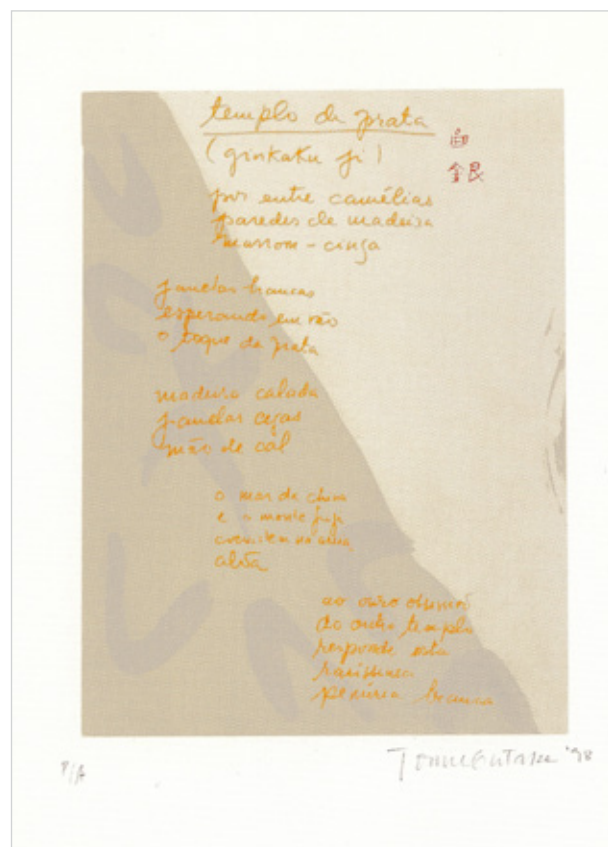 templo da prata
(ginkaku ji)
白
銀
por entre camélias
paredes de madeira
marrom-cinza
janelas brancas
esperando em vão
o toque da prata
madeira calada
janelas cegas
mão de cal
o mar da china
e o monte fuji
na areia
alva
ao ouro
do outro templo
responde esta
raríssima
penúria branca
P/A
Tomie Ohtake '98